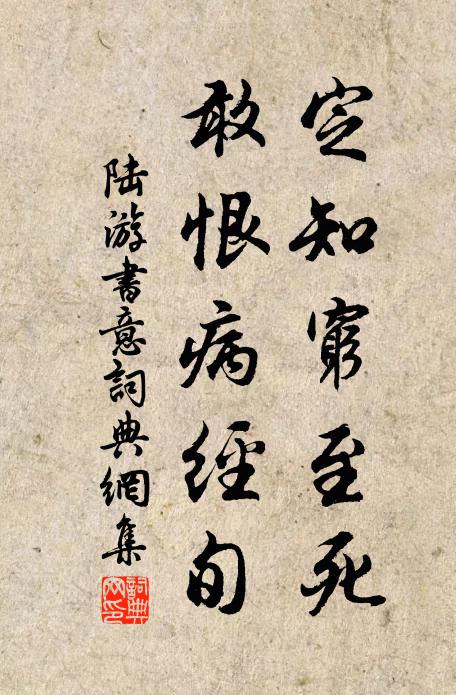 定知窮至死
敢恨病經旬
陸游書意詞典網集
詞典網印